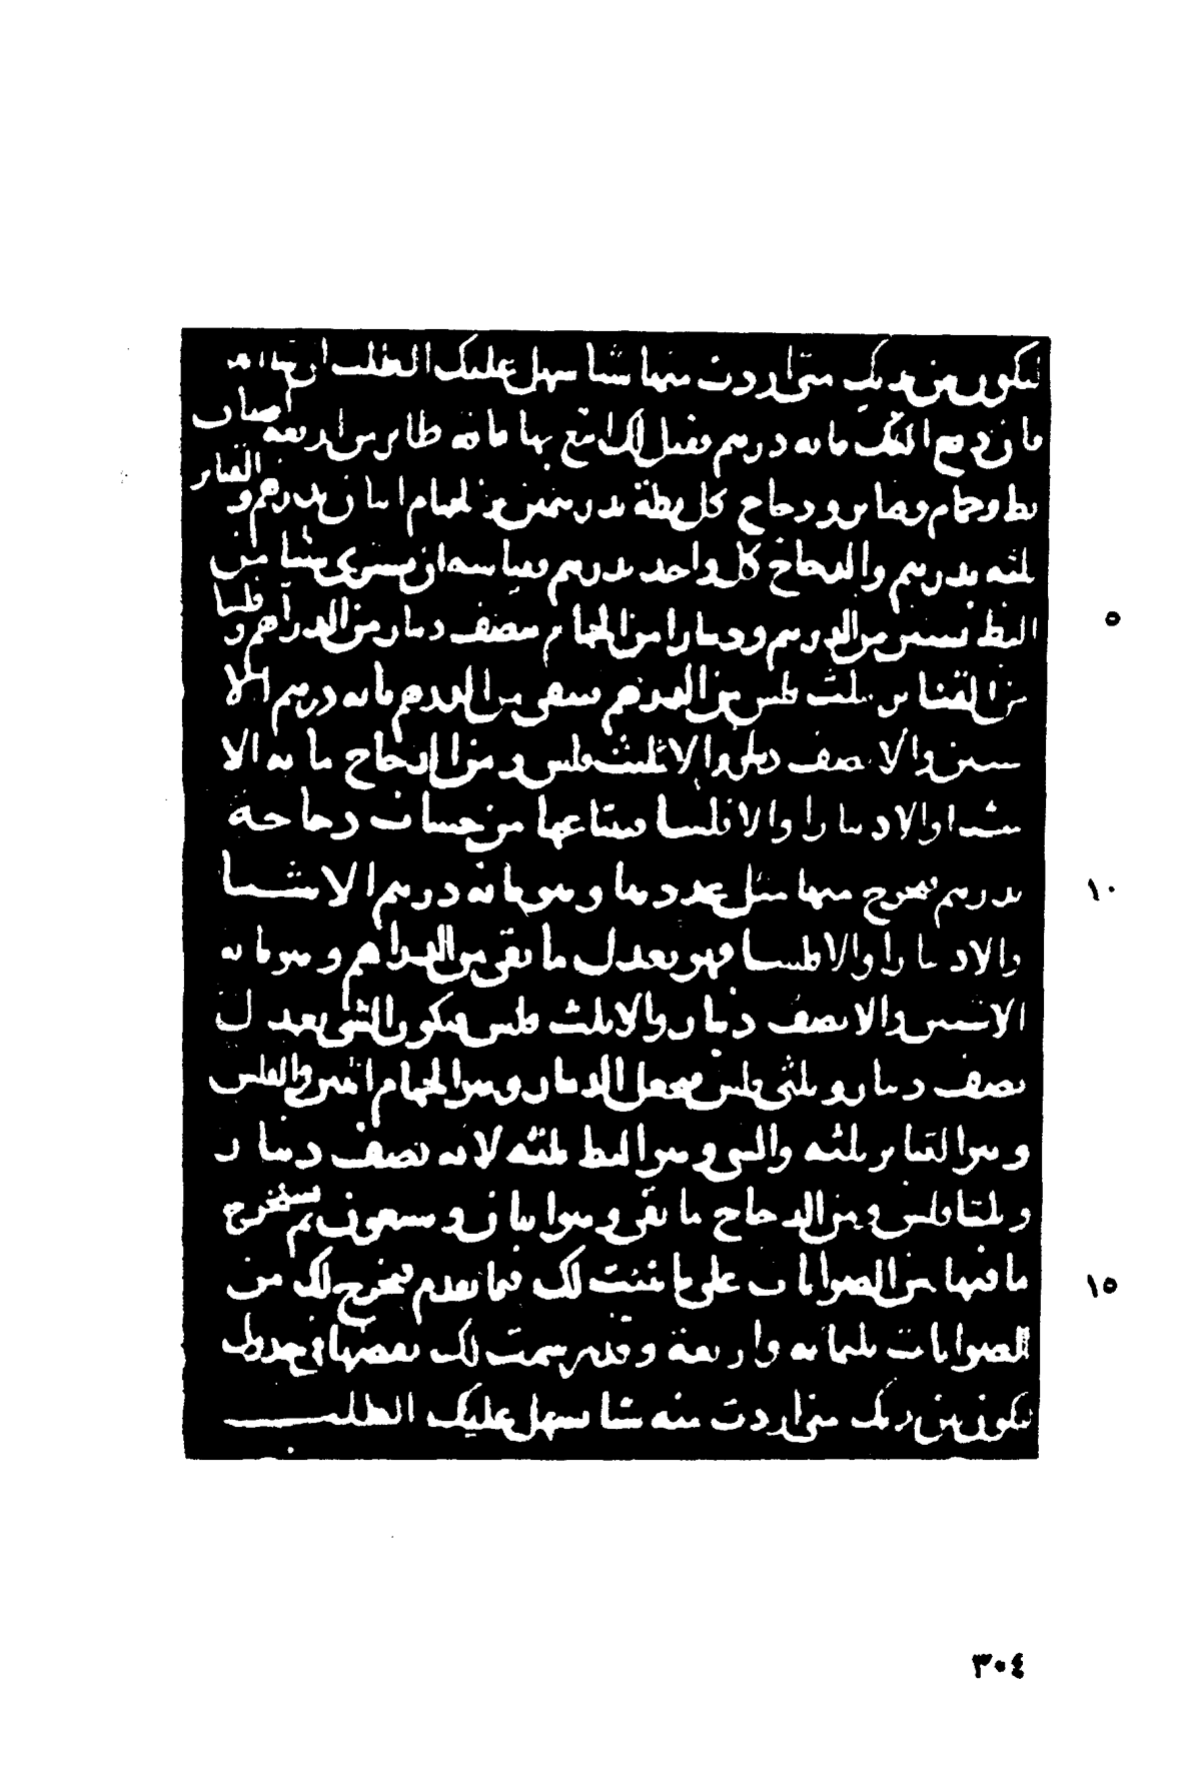 لتكون بين يديك متى اردت منها شيا سهل عليك الطلب ان شا الله
فان دفع اليك مايه درهم فقيل لك ابتع بها مايه طاير من اربعة اصناف
بط وحمام وقنابر ودجاج كل بطة بدرهمين ومن الحمام اثنان بدرهم والقنابر
ثلثه بدرهم والدجاج كل واحد بدرهم فقياسه ان تشترى شيا من
البط بشيين من الدرهم ودينارا من الحمام بنصف دينار من الدراهم وفلسا
من القنابر بثلث فلس من الدرهم فيبقى من الدرهم مايه درهم الا
شيين والا نصف دينار والا ثلث فلس ومن الدجاج مايه الا
شيا والا دينارا والا فلسا فيبتاعها من حساب دجاجة
بدرهم فيخرج منها مثل عددها وهو مايه درهم الا شيا
والا دينارا والا فلسا فهو يعدل ما بقى من الدراهم وهو مايه
الا شيين والا نصف دينار والا ثلث فلس فيكون الشى يعدل
نصف دينار وثلثى فلس فيجعل الدينار وهو الحمام اثنين والفلس
وهو القنابر ثلثه والشى وهو البط ثلثه لانه نصف دينار
وثلثا فلس ومن الدجاج ما بقى وهو اثنان وتسعون ثم تستخرج
ما فيها من الصوابات على ما بينت لك فيما تقدم فيخرج لك من
الصوابات ثلثمايه واربعة وقد رسمت لك بعضها فى جدول
ليكون بين يديك متى اردت منه شيا سهل عليك الطلب
٥
١٠
١٥
٣٠٤